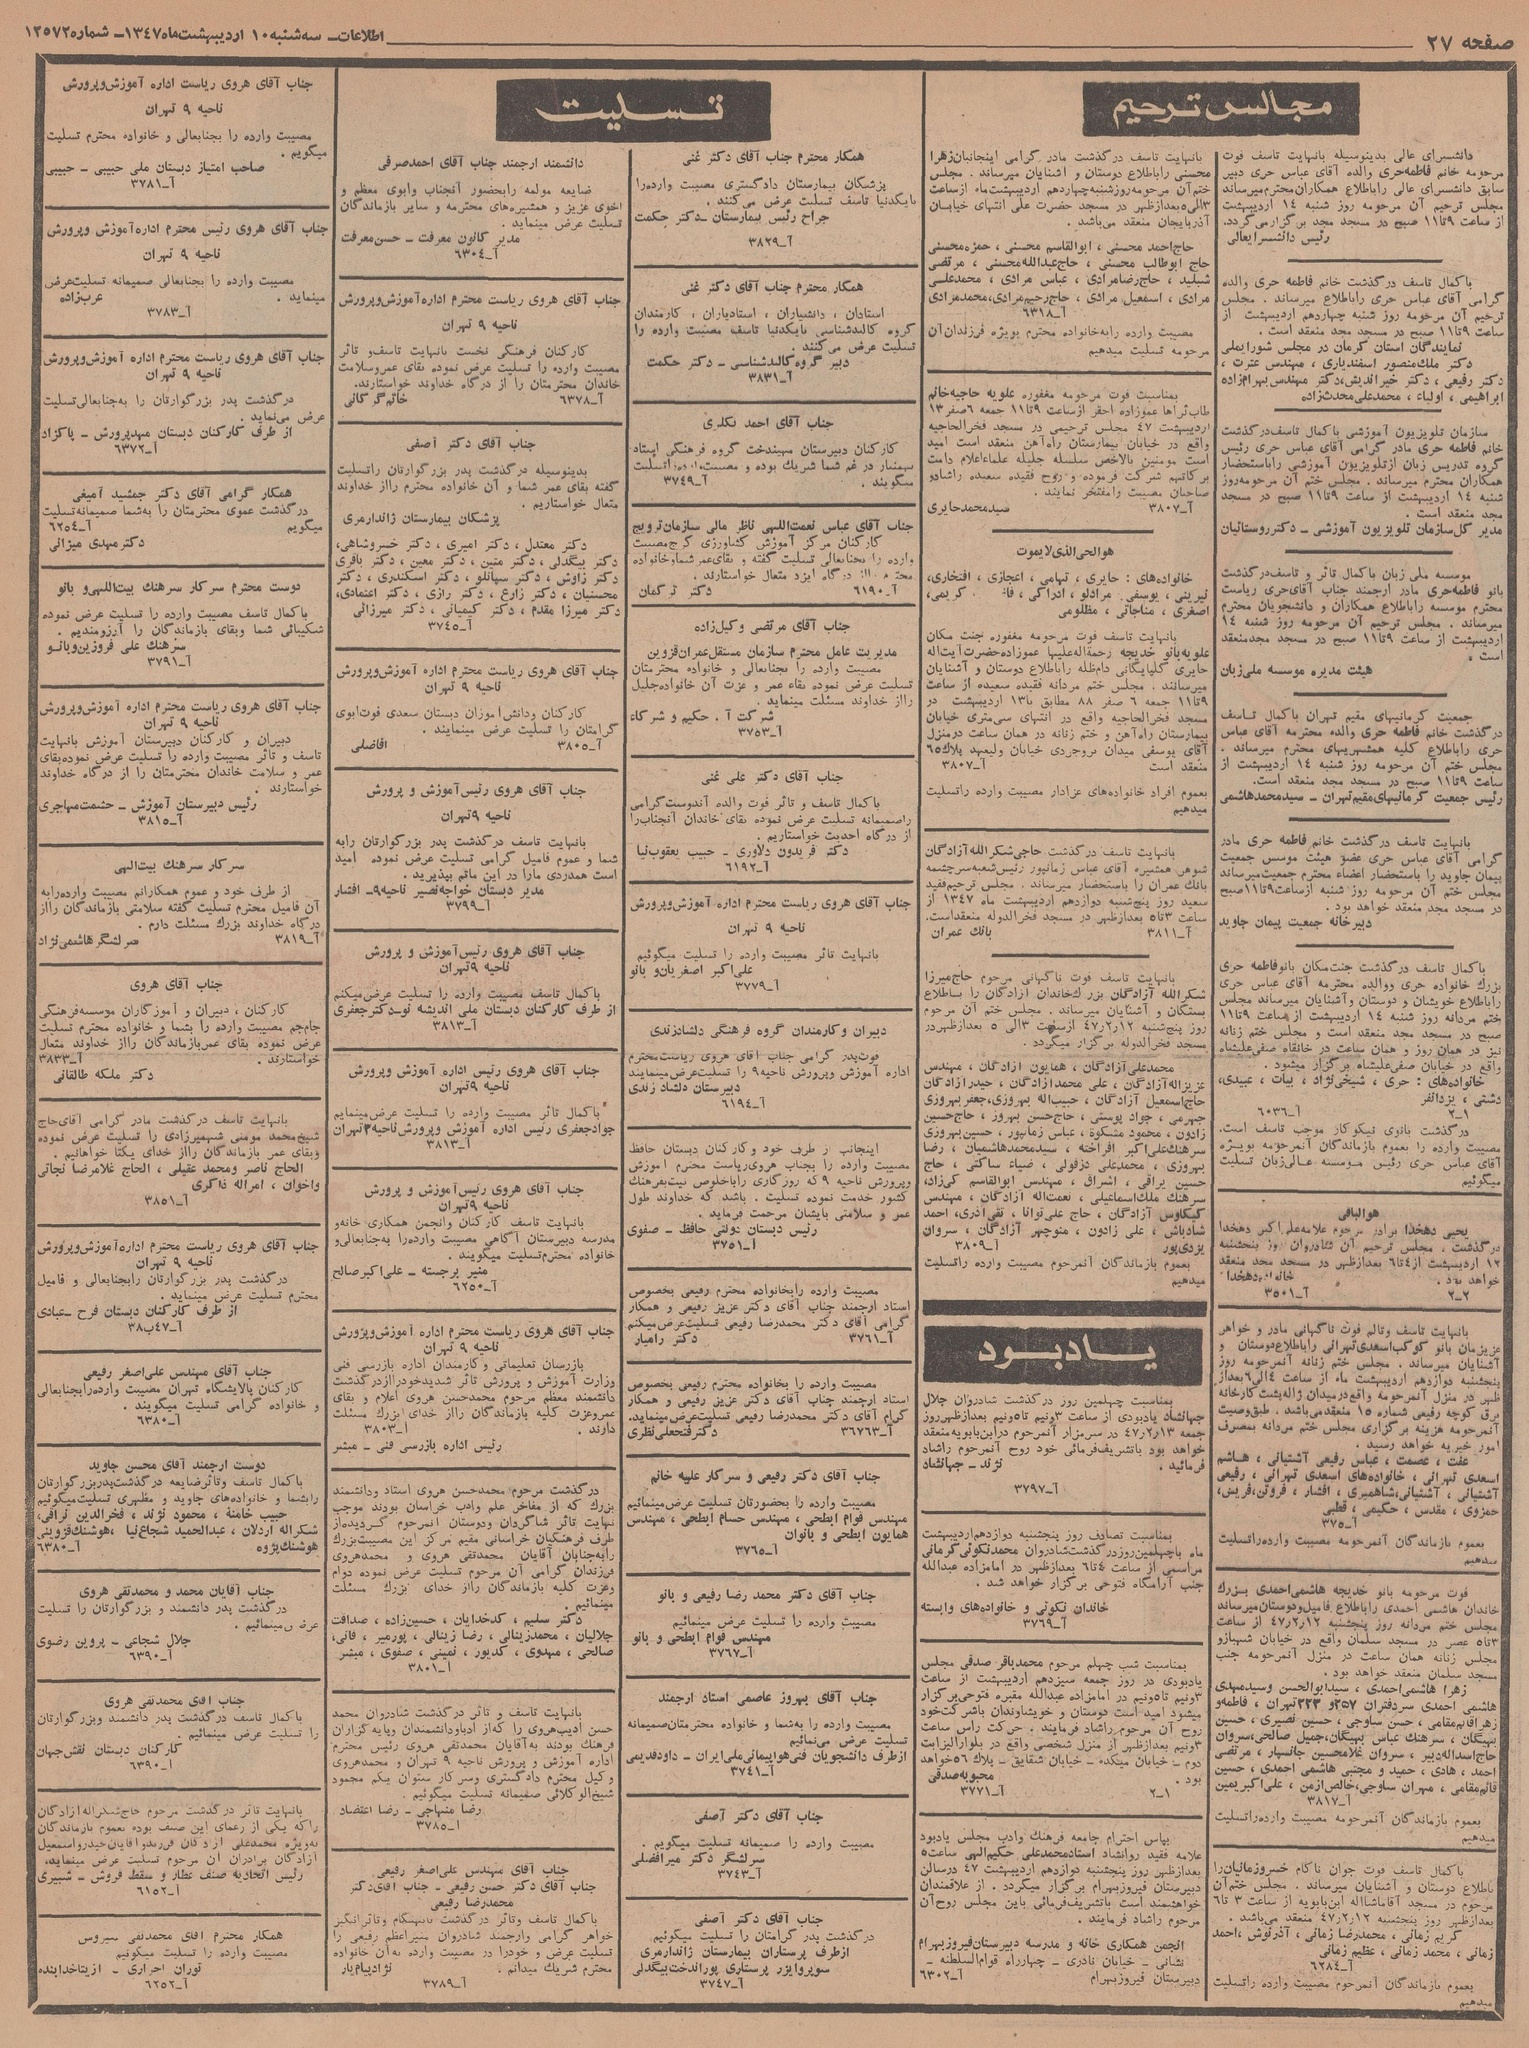 صفحه ۲۷
اطلاعات – سه‌شنبه ۱۰ اردیبهشت ماه ۱۳۴۷ – شماره ۱۲۵۷۲
مجالس ترحیم
دانشسرای عالی بدینوسیله بانهایت تاسف فوت
مرحومه خانم فاطمه حری والده آقای عباس حری دبیر
سابق دانشسرای عالی را باطلاع همکاران محترم میرساند
مجلس ترحیم آن مرحومه روز شنبه ۱۴ اردیبهشت
از ساعت ۹ تا ۱۱ صبح در مسجد مجد برگزار می‌گردد.
رئیس دانشسرایعالی
باکمال تاسف درگذشت خانم فاطمه حری والده
گرامی آقای عباس حری را باطلاع میرساند . مجلس
ترحیم آن مرحومه روز شنبه چهاردهم اردیبهشت از
ساعت ۹ تا ۱۱ صبح در مسجد مجد منعقد است .
نمایندگان استان کرمان در مجلس شورایملی
دکتر ملک‌منصور اسفندیاری ، مهندس عترت ،
دکتر رفیعی ، دکتر خیراندیش، دکتر مهندس بهرام‌زاده
ابراهیمی ، اولیاء ، محمدعلی محدث‌زاده
سازمان تلویزیون آموزشی باکمال تاسف درگذشت
خانم فاطمه حری مادر گرامی آقای عباس حری رئیس
گروه تدریس زبان از تلویزیون آموزشی را باستحضار
همکاران محترم میرساند . مجلس ختم آن مرحومه روز
شنبه ۱۴ اردیبهشت از ساعت ۹ تا ۱۱ صبح در مسجد
مجد منعقد است .
مدیر کل سازمان تلویزیون آموزشی – دکتر روستائیان
موسسه ملی زبان باکمال تاثر و تاسف درگذشت
بانو فاطمه حری مادر ارجمند جناب آقای حری ریاست
محترم موسسه را باطلاع همکاران و دانشجویان محترم
میرساند . مجلس ترحیم آن مرحومه روز شنبه ۱۴
اردیبهشت از ساعت ۹ تا ۱۱ صبح در مسجد مجد منعقد
است .
هیئت مدیره موسسه ملی زبان
جمعیت کرمانیهای مقیم تهران باکمال تاسف
درگذشت خانم فاطمه حری والده محترمه آقای عباس
حری را باطلاع کلیه همشهریهای محترم میرساند .
مجلس ختم آن مرحومه روز شنبه ۱۴ اردیبهشت از
ساعت ۹ تا ۱۱ صبح در مسجد مجد منعقد است.
رئیس جمعیت کرمانیهای مقیم تهران – سیدمحمد هاشمی
بانهایت تاسف درگذشت خانم فاطمه حری مادر
گرامی آقای عباس حری عضو هیئت موسس جمعیت
پیمان جاوید را باستحضار اعضاء محترم جمعیت میرساند
مجلس ختم آن مرحومه روز شنبه از ساعت ۹ تا ۱۱ صبح
در مسجد مجد منعقد خواهد بود .
دبیرخانه جمعیت پیمان جاوید
باکمال تاسف درگذشت جنت‌مکان بانو فاطمه حری
بزرگ خانواده حری و والده محترمه آقای عباس حری
را باطلاع خویشان و دوستان و آشنایان میرساند مجلس
ختم مردانه روز شنبه ۱۴ اردیبهشت از ساعت ۹ تا ۱۱
صبح در مسجد مجد منعقد است و مجلس ختم زنانه
نیز در همان روز و همان ساعت در خانقاه صفی‌علیشاه
واقع در خیابان صفی‌علیشاه برگزار میشود .
خانواده‌های : حری ، شیخی‌نژاد ، بیات ، عبیدی،
دشتی ، یزدانفر
۲–۱ آ–۶۰۳۶
درگذشت بانوی نیکوکار موجب تاسف است.
مصیبت وارده را بعموم بازماندگان آنمرحومه بویژه
آقای عباس حری رئیس موسسه عالی زبان تسلیت
میگوئیم
هوالباقی
یحیی دهخدا برادر مرحوم علامه علی‌اکبر دهخدا
درگذشت ، مجلس ترحیم آن شادروان روز پنجشنبه
۱۲ اردیبهشت از ۴ تا ۶ بعدازظهر در مسجد مجد منعقد
خواهد بود . خانواده دهخدا
۲–۲ آ–۳۵۰۱
بانهایت تاسف و تالم فوت ناگهانی مادر و خواهر
عزیزمان بانو کوکب اسعدی تهرانی را باطلاع دوستان و
آشنایان میرساند . مجلس ختم زنانه آنمرحومه روز
پنجشنبه دوازدهم اردیبهشت ماه از ساعت ۴ الی ۶ بعداز
ظهر در منزل آنمرحومه واقع در میدان ژاله پشت کارخانه
برق کوچه رفیعی شماره ۱۵ منعقد می‌باشد . طبق وصیت
آنمرحومه هزینه برگزاری مجلس ختم مردانه بمصرف
امور خیریه خواهد رسید .
عفت ، عصمت ، عباس رفیعی آشتیانی ، هاشم
اسعدی تهرانی ، خانواده‌های اسعدی تهرانی ، رفیعی
آشتیانی ، آشتیانی، شاهمیری ، افشار ، فروتن، فریش،
حمزوی ، مقدس ، حکیمی ، قطبی
آ–۳۷۵
بعموم بازماندگان آنمرحومه مصیبت وارده را تسلیت
میدهیم
فوت مرحومه بانو خدیجه هاشمی احمدی بزرگ
خاندان هاشمی احمدی را باطلاع فامیل و دوستان میرساند
مجلس ختم مردانه روز پنجشنبه ۴۷٫۲٫۱۲ از ساعت
۳ تا ۵ عصر در مسجد سلمان واقع در خیابان شهباز و
مجلس زنانه همان ساعت در منزل آنمرحومه جنب
مسجد سلمان منعقد خواهد بود .
زهرا هاشمی احمدی ، سیدابوالحسن و سیدمهدی
هاشمی احمدی سردفتران ۲۵۷ و ۲۲۳ تهران ، فاطمه و
زهرا قائم‌مقامی ، حسن ساوجی ، حسین نصیری ، حسین
بهبیگان ، سرهنگ عباس بهبیگان، جمیل صالحی، سروان
حاج اسداله دبیر ، سروان غلامحسین جانسپار ، مرتضی
احمد ، هادی ، حمید و مجتبی هاشمی احمدی ، حسین
قائم‌مقامی ، مهران ساوجی، خالص ازمن ، علی‌اکبر یمین
آ–۳۸۱۷
بعموم بازماندگان آنمرحومه مصیبت وارده را تسلیت
میدهیم
باکمال تاسف فوت جوان ناکام خسرو زمانیان را
باطلاع دوستان و آشنایان میرساند . مجلس ختم آن
مرحوم در مسجد آقاماشااله ابن‌بابویه از ساعت ۳ تا ۶
بعدازظهر روز پنجشنبه ۴۷٫۲٫۱۲ منعقد می‌باشد .
کریم زمانی ، محمدرضا زمانی ، آذرنوش ، احمد
زمانی ، محمد زمانی ، عظیم زمانی
آ–۶۲۸۴
بعموم بازماندگان آنمرحوم مصیبت وارده را تسلیت
میدهیم
بانهایت تاسف درگذشت مادر گرامی اینجانبان زهرا
محسنی را باطلاع دوستان و آشنایان میرساند . مجلس
ختم آن مرحومه روز شنبه چهاردهم اردیبهشت ماه از ساعت
۳ الی ۵ بعدازظهر در مسجد حضرت علی انتهای خیابان
آذربایجان منعقد می‌باشد .
حاج احمد محسنی ، ابوالقاسم محسنی ، حمزه محسنی
حاج ابوطالب محسنی ، حاج عبدالله محسنی ، مرتضی
شبلید ، حاج رضا مرادی ، عباس مرادی ، محمدعلی
مرادی ، اسمعیل مرادی ، حاج رحیم مرادی، محمد مرادی
آ–۶۳۱۸
مصیبت وارده را به خانواده محترم بویژه فرزندان آن
مرحومه تسلیت میدهیم
بمناسبت فوت مرحومه مغفوره علویه حاجیه خانم
طاب ثراها عموزاده احقر از ساعت ۹ تا ۱۱ جمعه ۶ صفر ۱۳
اردیبهشت ۴۷ مجلس ترحیمی در مسجد فخرالحاجیه
واقع در خیابان بیمارستان راه‌آهن منعقد است امید
است مومنین بالاخص سلسله جلیله علماء اعلام دامت
برکاتهم شرکت فرموده و روح فقیده سعیده را شاد و
صاحبان مصیبت را مفتخر نمایند .
آ–۳۸۰۷ سیدمحمد حایری
هوالحی الذی لایموت
خانواده‌های : حایری ، تهامی ، اعجازی ، افتخاری،
لیرینی ، یوسفی ، مرادلو ، ادراکی ، کریمی،
اصغری ، مناجاتی ، مظلومی
بانهایت تاسف فوت مرحومه مغفوره جنت مکان
علویه بانو خدیجه رحمة‌اله‌علیها عموزاده حضرت آیت‌اله
حایری گلپایگانی دام‌ظله را باطلاع دوستان و آشنایان
میرسانند . مجلس ختم مردانه فقیده سعیده از ساعت
۹ تا ۱۱ جمعه ۶ صفر ۸۸ مطابق با ۱۳ اردیبهشت در
مسجد فخرالحاجیه واقع در انتهای سی‌متری خیابان
بیمارستان راه‌آهن و ختم زنانه در همان ساعت در منزل
آقای یوسفی میدان بروجردی خیابان ولیعهد پلاک ۶۵
منعقد است آ–۳۸۰۷
بعموم افراد خانواده‌های عزادار مصیبت وارده را تسلیت
میدهیم
بانهایت تاسف درگذشت حاجی شکرالله آزادگان
شوهر همشیره آقای عباس زمانپور رئیس شعبه سرچشمه
بانک عمران را باستحضار میرساند . مجلس ترحیم فقید
سعید روز پنج‌شنبه دوازدهم اردیبهشت ماه ۱۳۴۷ از
ساعت ۳ تا ۵ بعدازظهر در مسجد فخرالدوله منعقد است.
آ–۳۸۱۱ بانک عمران
بانهایت تاسف فوت ناگهانی مرحوم حاج میرزا
شکرالله آزادگان بزرگ خاندان آزادگان را باطلاع
بستگان و آشنایان میرساند . مجلس ختم آن مرحوم در
روز پنجشنبه ۴۷٫۲٫۱۲ از ساعت ۳ الی ۵ بعدازظهر در
مسجد فخرالدوله برگزار میگردد .
محمدعلی آزادگان ، همایون آزادگان ، مهندس
عزیزاله آزادگان ، علی محمد آزادگان ، حیدر آزادگان
حاج اسمعیل آزادگان ، حبیب‌اله بهروزی، جعفر بهروزی
جهرمی ، جواد یوسنی ، حاج حسن بهروز ، حاج حسین
زادون ، محمود مشکوة ، عباس زمانپور ، حسین بهروزی
سرهنگ علی‌اکبر افراخته ، سیدمحمد هاشمیان ، رضا
بهروزی ، محمدعلی دزفولی ، ضیاء ساکتی ، حاج
حسین یراقی ، اشراق ، مهندس ابوالقاسم کی‌زاد،
سرهنگ ملک اسماعیلی ، نعمت‌اله آزادگان ، مهندس
کیکاوس آزادگان ، حاج علی توانا ، تقی آذری، احمد
شادباش ، علی زادون ، منوچهر آزادگان ، سروان
یزدی‌پور آ–۳۸۰۹
بعموم بازماندگان آنمرحوم مصیبت وارده را تسلیت
میدهیم
یادبود
بمناسبت چهلمین روز درگذشت شادروان جلال
جهانشاد یادبودی از ساعت ۳ونیم تا ۵ونیم بعدازظهر روز
جمعه ۴۷٫۲٫۱۳ در سر مزار آنمرحوم در ابن‌بابویه منعقد
خواهد بود باتشریف‌فرمائی خود روح آنمرحوم را شاد
فرمائید . نژند – جهانشاد
آ–۳۷۹۷
بمناسبت تصادف روز پنجشنبه دوازدهم اردیبهشت
ماه با چهلمین روز درگذشت شادروان محمد نکوئی کرمانی
مراسمی از ساعت ۴ تا ۶ بعدازظهر در امامزاده عبدالله
جنب آرامگاه فتوحی برگزار خواهد شد .
خاندان نکوئی و خانواده‌های وابسته
آ–۳۷۶۹
بمناسبت شب چهلم مرحوم محمدباقر صدقی مجلس
یادبودی در روز جمعه سیزدهم اردیبهشت از ساعت
۳ونیم تا ۵ونیم در امامزاده عبدالله مقبره فتوحی برگزار
میشود امید است دوستان و خویشاوندان باشرکت خود
روح آن مرحوم را شاد فرمایند . حرکت راس ساعت
۳ونیم بعدازظهر از منزل شخصی واقع در بلوار الیزابت
دوم – خیابان میکده – خیابان شقایق – پلاک ۵۶ خواهد
بود . محبوبه صدقی
۲–۱ آ–۳۷۷۱
بپاس احترام جامعه فرهنگ و ادب مجلس یادبود
علامه فقید روانشاد استاد محمدعلی حکیم الهی ساعت ۵
بعدازظهر روز پنجشنبه دوازدهم اردیبهشت ۴۷ در سالن
دبیرستان فیروز بهرام برگزار میگردد . از علاقمندان
خواهشمند است باتشریف‌فرمائی باین مجلس روح آن
مرحوم را شاد فرمایند .
انجمن همکاری خانه و مدرسه دبیرستان فیروز بهرام
نشانی – خیابان نادری – چهارراه قوام‌السلطنه –
دبیرستان فیروز بهرام آ–۶۳۰۲
تسلیت
همکار محترم جناب آقای دکتر غنی
پزشکان بیمارستان دادگستری مصیبت وارده را
بایکدنیا تاسف تسلیت عرض می‌کنند .
جراح رئیس بیمارستان – دکتر حکمت
آ–۳۸۲۹
همکار محترم جناب آقای دکتر غنی
استادان ، دانشیاران ، استادیاران ، کارمندان
گروه کالبدشناسی بایکدنیا تاسف مصیبت وارده را
تسلیت عرض می‌کنند .
دبیر گروه کالبدشناسی – دکتر حکمت
آ–۳۸۳۱
جناب آقای احمد تکلری
کارکنان دبیرستان مهیندخت گروه فرهنگی استاد
بهمنیار در غم شما شریک بوده و مصیبت وارده را تسلیت
میگویند . آ–۳۷۴۹
جناب آقای عباس نعمت‌اللهی ناظر مالی سازمان ترویج
کارکنان مرکز آموزش کشاورزی کرج مصیبت
وارده را بجنابعالی تسلیت گفته و بقای عمر شما و خانواده
محترم را از درگاه ایزد متعال خواستارند .
آ–۶۱۹۰ دکتر ترگمان
جناب آقای مرتضی وکیل‌زاده
مدیریت عامل محترم سازمان مستقل عمران قزوین
مصیبت وارده را بجنابعالی و خانواده محترمتان
تسلیت عرض نموده بقاء عمر و عزت آن خانواده جلیل
را از خداوند مسئلت مینماید .
شرکت آ . حکیم و شرکاء
آ–۳۷۵۳
جناب آقای دکتر علی غنی
باکمال تاسف و تاثر فوت والده آندوست گرامی
را صمیمانه تسلیت عرض نموده بقای خاندان آنجناب را
از درگاه احدیت خواستاریم .
دکتر فریدون دلاوری – حبیب یعقوب‌نیا
آ–۶۱۹۲
جناب آقای هروی ریاست محترم اداره آموزش‌وپرورش
ناحیه ۹ تهران
بانهایت تاثر مصیبت وارده را تسلیت میگوئیم
علی‌اکبر اصغریان و بانو
آ–۳۷۷۹
دبیران و کارمندان گروه فرهنگی دلشادزندی
فوت پدر گرامی جناب آقای هروی ریاست محترم
اداره آموزش وپرورش ناحیه ۹ را تسلیت عرض مینمایند
دبیرستان دلشاد زندی
آ–۶۱۹۴
اینجانب از طرف خود و کارکنان دبستان حافظ
مصیبت وارده را بجناب هروی ریاست محترم آموزش
وپرورش ناحیه ۹ که روزگاری را باخلوص نیت بفرهنگ
کشور خدمت نموده تسلیت . باشد که خداوند طول
عمر و سلامتی بایشان مرحمت فرماید .
رئیس دبستان دولتی حافظ – صفوی
آ–۳۷۵۱
مصیبت وارده را بخانواده محترم رفیعی بخصوص
استاد ارجمند جناب آقای دکتر عزیز رفیعی و همکار
گرامی آقای دکتر محمدرضا رفیعی تسلیت عرض میکنم
آ–۳۷۶۱ دکتر رامیار
مصیبت وارده را بخانواده محترم رفیعی بخصوص
استاد ارجمند جناب آقای دکتر عزیز رفیعی و همکار
گرام آقای دکتر محمدرضا رفیعی تسلیت عرض مینماید.
آ–۳۶۷۶۳ دکتر فتحعلی نظری
جناب آقای دکتر رفیعی و سرکار علیه خانم
مصیبت وارده را بحضورتان تسلیت عرض مینمائیم
مهندس قوام ابطحی ، مهندس حسام ابطحی ، مهندس
همایون ابطحی و بانوان
آ–۳۷۶۵
جناب آقای دکتر محمد رضا رفیعی و بانو
مصیبت وارده را تسلیت عرض مینمائیم
مهندس قوام ابطحی و بانو
آ–۳۷۶۷
جناب آقای بهروز عاصمی استاد ارجمند
مصیبت وارده را به‌شما و خانواده محترمتان صمیمانه
تسلیت عرض می‌نمائیم
از طرف دانشجویان فنی هواپیمائی ملی ایران – داود قدیمی
آ–۳۷۴۱
جناب آقای دکتر آصفی
مصیبت وارده را صمیمانه تسلیت میگویم .
سرلشگر دکتر میرافضلی
آ–۳۷۴۳
جناب آقای دکتر آصفی
درگذشت پدر گرامتان را تسلیت میگوئیم
از طرف پرستاران بیمارستان ژاندارمری
سوپروایزر پرستاری پوراندخت بیگدلی
آ–۳۷۴۷
دانشمند ارجمند جناب آقای احمد صرفی
ضایعه مولمه را بحضور آنجناب وابوی معظم و
اخوی عزیز و همشیره‌های محترمه و سایر بازماندگان
تسلیت عرض مینماید .
مدیر کانون معرفت – حسن معرفت
آ–۶۳۰۴
جناب آقای هروی ریاست محترم اداره آموزش‌وپرورش
ناحیه ۹ تهران
کارکنان فرهنگی نخست بانهایت تاسف و تاثر
مصیبت وارده را تسلیت عرض نموده بقای عمر و سلامت
خاندان محترمتان را از درگاه خداوند خواستارند.
آ–۶۳۷۸ خانم گرگانی
جناب آقای دکتر آصفی
بدینوسیله درگذشت پدر بزرگوارتان را تسلیت
گفته بقای عمر شما و آن خانواده محترم را از خداوند
متعال خواستاریم .
پزشکان بیمارستان ژاندارمری
دکتر معتدل ، دکتر امیری ، دکتر خسروشاهی،
دکتر بیگدلی ، دکتر متین ، دکتر معین ، دکتر باقری
دکتر زاوش ، دکتر سپانلو ، دکتر اسکندری ، دکتر
محسنیان ، دکتر زارع ، دکتر رازی ، دکتر اعتمادی،
دکتر میرزا مقدم ، دکتر کیمیائی ، دکتر میرزائی
آ–۳۷۴۵
جناب آقای هروی ریاست محترم اداره آموزش‌وپرورش
ناحیه ۹ تهران
کارکنان و دانش‌آموزان دبستان سعدی فوت ابوی
گرامتان را تسلیت عرض مینمایند .
آ–۳۸۰۵ افاضلی
جناب آقای هروی رئیس آموزش و پرورش
ناحیه ۹ تهران
بانهایت تاسف درگذشت پدر بزرگوارتان را به
شما و عموم فامیل گرامی تسلیت عرض نموده امید
است همدردی مارا در این ماتم بپذیرید .
مدیر دبستان خواجه نصیر ناحیه ۹ – افشار
آ–۳۷۹۹
جناب آقای هروی رئیس آموزش و پرورش
ناحیه ۹ تهران
باکمال تاسف مصیبت وارده را تسلیت عرض میکنم
از طرف کارکنان دبستان ملی اندیشه نو – دکتر جعفری
آ–۳۸۱۳
جناب آقای هروی رئیس اداره آموزش وپرورش
ناحیه ۹ تهران
باکمال تاثر مصیبت وارده را تسلیت عرض مینمایم
جواد جعفری رئیس اداره آموزش وپرورش ناحیه ۳ تهران
آ–۳۸۱۳
جناب آقای هروی رئیس آموزش و پرورش
ناحیه ۹ تهران
بانهایت تاسف کارکنان و انجمن همکاری خانه و
مدرسه دبیرستان آگاهی مصیبت وارده را به‌جنابعالی و
خانواده محترم تسلیت میگویند .
منیر برجسته – علی‌اکبر صالح
آ–۶۲۵۰
جناب آقای هروی ریاست محترم اداره آموزش‌وپرورش
ناحیه ۹ تهران
بازرسان تعلیماتی و کارمندان اداره بازرسی فنی
وزارت آموزش و پرورش تاثر شدید خود را از درگذشت
دانشمند معظم مرحوم محمدحسن هروی اعلام و بقای
عمر و عزت کلیه بازماندگان را از خدای بزرگ مسئلت
دارند . آ–۳۸۰۳
رئیس اداره بازرسی فنی – مبشر
درگذشت مرحوم محمدحسن هروی استاد و دانشمند
بزرگ که از مفاخر علم وادب خراسان بودند موجب
نهایت تاثر شاگردان و دوستان آنمرحوم گردیده از
طرف فرهنگیان خراسانی مقیم مرکز این مصیبت بزرگ
را به‌جنابان آقایان محمدتقی هروی و محمد هروی
فرزندان گرامی آن مرحوم تسلیت عرض نموده دوام
وعزت کلیه بازماندگان را از خدای بزرگ مسئلت
مینمائیم .
دکتر سلیم ، کدخدایان ، حسین‌زاده ، صداقت
جلالیان ، محمد زینالی ، رضا زینالی ، پورمیر ، فانی،
صالحی ، مهدوی ، کدیور ، ثمینی ، صفوی ، مبشر
آ–۳۸۰۱
بانهایت تاسف و تاثر درگذشت شادروان محمد
حسن ادیب هروی را که از ادبا و دانشمندان و پایه گزاران
فرهنگ بودند به‌آقایان محمدتقی هروی رئیس محترم
اداره آموزش و پرورش ناحیه ۹ تهران و محمد هروی
وکیل محترم دادگستری و سرکار ستوان یکم محمود
شیخ‌الوکلائی صمیمانه تسلیت میگوئیم .
رضا منهاجی – رضا اعتضاد
آ–۳۷۸۵
جناب آقای مهندس علی‌اصغر رفیعی
جناب آقای دکتر حسن رفیعی – جناب آقای دکتر
محمدرضا رفیعی
باکمال تاسف وتاثر درگذشت نابهنگام وتاثرانگیز
خواهر گرامی وارجمند شادروان منیراعظم رفیعی را
تسلیت عرض و خودرا در مصیبت وارده به آن خانواده
محترم شریک میدانم . نژاد پیام‌یار
آ–۳۷۸۹
جناب آقای هروی ریاست اداره آموزش‌وپرورش
ناحیه ۹ تهران
مصیبت وارده را بجنابعالی و خانواده محترم تسلیت
میگویم .
صاحب امتیاز دبستان ملی حبیبی – حبیبی
آ–۳۷۸۱
جناب آقای هروی رئیس محترم اداره آموزش وپرورش
ناحیه ۹ تهران
مصیبت وارده را بجنابعالی صمیمانه تسلیت عرض
مینماید . عرب‌زاده
آ–۳۷۸۳
جناب آقای هروی ریاست محترم اداره آموزش‌وپرورش
ناحیه ۹ تهران
درگذشت پدر بزرگوارتان را به‌جنابعالی تسلیت
عرض می‌نماید .
از طرف کارکنان دبستان مهدپرورش – پاکزاد
آ–۶۳۷۲
همکار گرامی آقای دکتر جمشید آمیغی
درگذشت عموی محترمتان را به‌شما صمیمانه تسلیت
میگویم آ–۶۲۵۴
دکتر مهدی میزانی
دوست محترم سرکار سرهنگ بیت‌اللهی و بانو
باکمال تاسف مصیبت وارده را تسلیت عرض نموده
شکیبائی شما وبقای بازماندگان را آرزومندیم .
سرهنگ علی فروزین و بانو
آ–۳۷۹۱
جناب آقای هروی ریاست محترم اداره آموزش‌وپرورش
ناحیه ۹ تهران
دبیران و کارکنان دبیرستان آموزش بانهایت
تاسف و تاثر مصیبت وارده را تسلیت عرض نموده بقای
عمر و سلامت خاندان محترمتان را از درگاه خداوند
خواستارند .
رئیس دبیرستان آموزش – حشمت مهاجری
آ–۳۸۱۵
سرکار سرهنگ بیت‌الهی
از طرف خود و عموم همکارانم مصیبت وارده را به
آن فامیل محترم تسلیت گفته سلامتی بازماندگان را از
درگاه خداوند بزرگ مسئلت دارم .
آ–۳۸۱۹ سرلشگر هاشمی‌نژاد
جناب آقای هروی
کارکنان ، دبیران و آموزگاران موسسه فرهنگی
جام‌جم مصیبت وارده را بشما و خانواده محترم تسلیت
عرض نموده بقای عمر بازماندگان را از خداوند متعال
خواستارند . آ–۳۸۳۳
دکتر ملکه طالقانی
بانهایت تاسف درگذشت مادر گرامی آقای حاج
شیخ محمد مومنی شهمیرزادی را تسلیت عرض نموده
وبقای عمر بازماندگان را از خدای یکتا خواهانیم .
الحاج ناصر و محمد عقیلی ، الحاج غلامرضا نجاتی
واخوان ، امراله ذاکری
آ–۳۸۵۱
جناب آقای هروی ریاست محترم اداره آموزش‌وپرورش
ناحیه ۹ تهران
درگذشت پدر بزرگوارتان را بجنابعالی و فامیل
محترم تسلیت عرض مینماید .
از طرف کارکنان دبستان فرح – عبادی
آ–۴۷ب۳۸
جناب آقای مهندس علی‌اصغر رفیعی
کارکنان پالایشگاه تهران مصیبت وارده را بجنابعالی
و خانواده گرامی تسلیت میگویند .
آ–۶۳۸۰
دوست ارجمند آقای محسن جاوید
باکمال تاسف وتاثر ضایعه درگذشت پدر بزرگوارتان
را بشما و خانواده‌های جاوید و مظهری تسلیت میگوئیم
حبیب خامنه ، محمود نژند ، فخرالدین نراقی،
شکراله اردلان ، عبدالحمید شجاع‌نیا ، هوشنگ قزوینی
هوشنگ پژوه آ–۶۳۸۰
جناب آقایان محمد و محمدتقی هروی
درگذشت پدر دانشمند و بزرگوارتان را تسلیت
عرض مینمائیم .
جلال شجاعی – پروین رضوی
آ–۶۳۹۰
جناب آقای محمدتقی هروی
باکمال تاسف درگذشت پدر دانشمند وبزرگوارتان
را تسلیت عرض مینمائیم .
کارکنان دبستان نقش‌جهان
آ–۶۳۹۰
بانهایت تاثر درگذشت مرحوم حاج شکراله آزادگان
را که یکی از زعمای این صنف بوده بعموم بازماندگان
به‌ویژه محمدعلی آزادگان فرزند و آقایان حیدر و اسمعیل
آزادگان برادران آن مرحوم تسلیت عرض مینماید.
رئیس اتحادیه صنف عطار و سقط فروش – شبیری
آ–۶۱۵۲
همکار محترم آقای محمدتقی سیروس
مصیبت وارده را تسلیت میگوئیم
توران احراری – ازیتا خدابنده
آ–۶۲۵۲